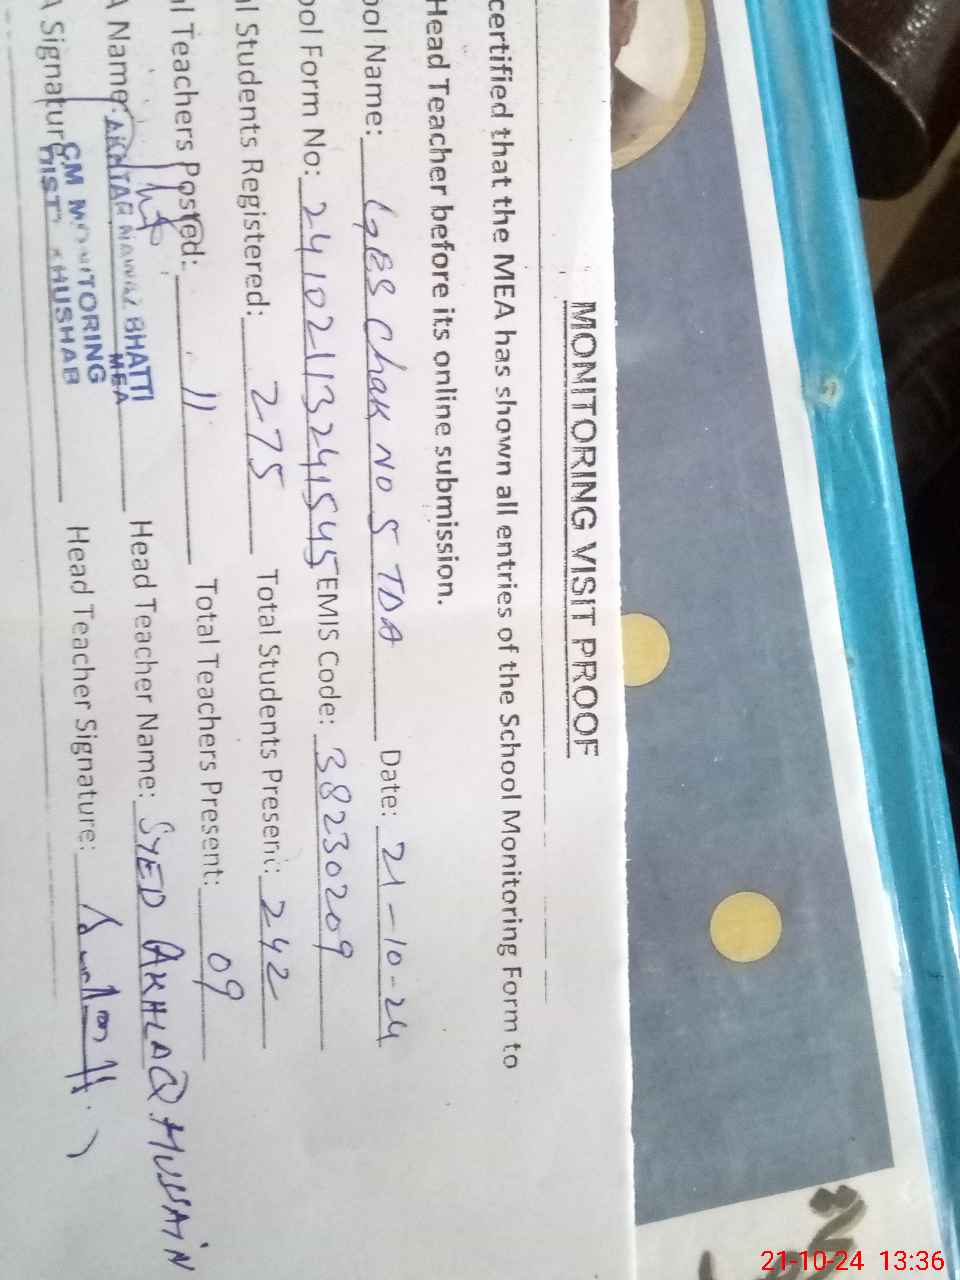 MONITORING VISIT PROOF
certified that the MEA has shown all entries of the School Monitoring Form to
Head Teacher before its online submission.
ool Name: GES Chak No 5 TDA Date: 21-10-24
ool Form No: 24102113241545 EMIS Code: 38230209
al Students Registered: 275 Total Students Present: 242
al Teachers Posted: 11 Total Teachers Present: 09
A Name: AKHTAR NAWAZ BHATTI Head Teacher Name: SYED AKHLAQ HUSSAIN
MEA
A Signature: Head Teacher Signature:
CM MONITORING
DISTT KHUSHAB
21-10-24 13:36